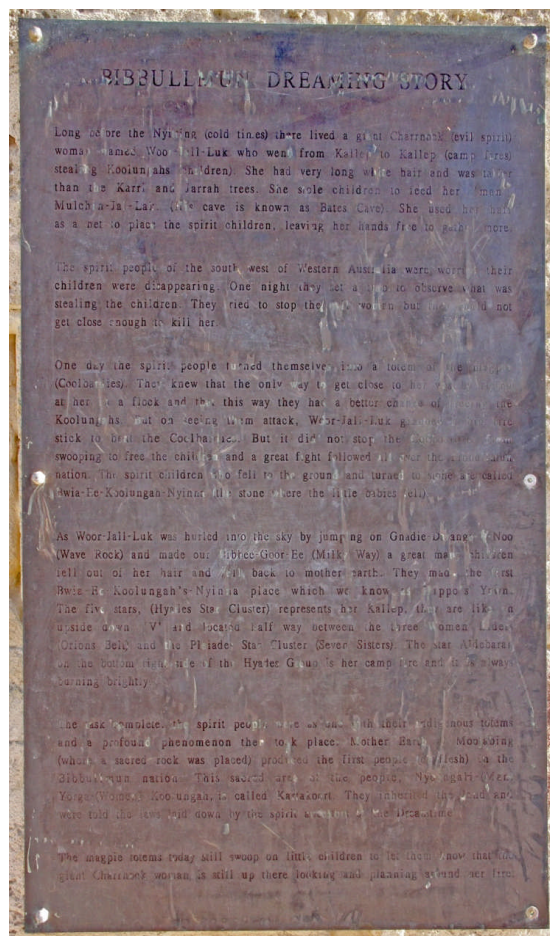 BIBBULLEMUN DREAMING STORY
Long before the Nyitting (cold times) there lived a giant Charrnock (evil spirit)
woman named Woor-Jall-Luk who went from Kallep to Kallep (camp fires)
stealing Koolungahs (children). She had very long white hair and was taller
than the Karri and Jarrah trees. She stole children to feed her
(his cave is known as Bates Cave). She used her hair
as a net to place the spirit children, leaving her hands free to gather more.
The spirit people of the south west of Western Australia were worried their
children were disappearing. One night they set a trap to observe what was
stealing the children. They tried to stop the woman but they could not
get close enough to kill her.
One day the spirit people turned themselves into a totem of the magpie
(Coolbardies). They knew that the only way to get close to her was
at her in a flock and that this way they had a better chance of the
Koolungahs. But on seeing them attack, Woor-Jall-Luk her fire
stick to the Coolbardies. But it did not stop the from
swooping to free the children and a great fight followed all over the
nation. The spirit children who fell to the ground and turned to stone are called
Bwia-Ee-Koolungah-Nyinna (the stone where the little babies fell).
As Woor-Jall-Luk was hurled into the sky by jumping on Gnadie-
(Wave Rock) and made our (Milky Way) a great many children
fell out of her hair and fell back to mother earth. They made the first
Bwia-Ee Koolungah's-Nyinna place which we know as
The five stars, (Hyades Star Cluster) represents her Kallep, they are like an
upside down 'V' and located half way between the three women
(Orions Belt) and the Pleiades Star Cluster (Seven Sisters). The star Aldebaran
on the bottom right side of the Hyades Group is her camp fire and it is always
burning brightly.
The task completed the spirit people were as one with their totems
and a profound phenomenon then took place. Mother Earth
(where a sacred rock was placed) produced the first people in the
Bibbullemun nation. This sacred area of the people, Nyoongah (Men),
Yorge (Women), Koolungah, is called They inherited the land and
were told the laws laid down by the spirit the Dreamtime.
The magpie totems today still swoop on little children to let them know that the
giant Charrnock woman is still up there looking and planning around her fire.